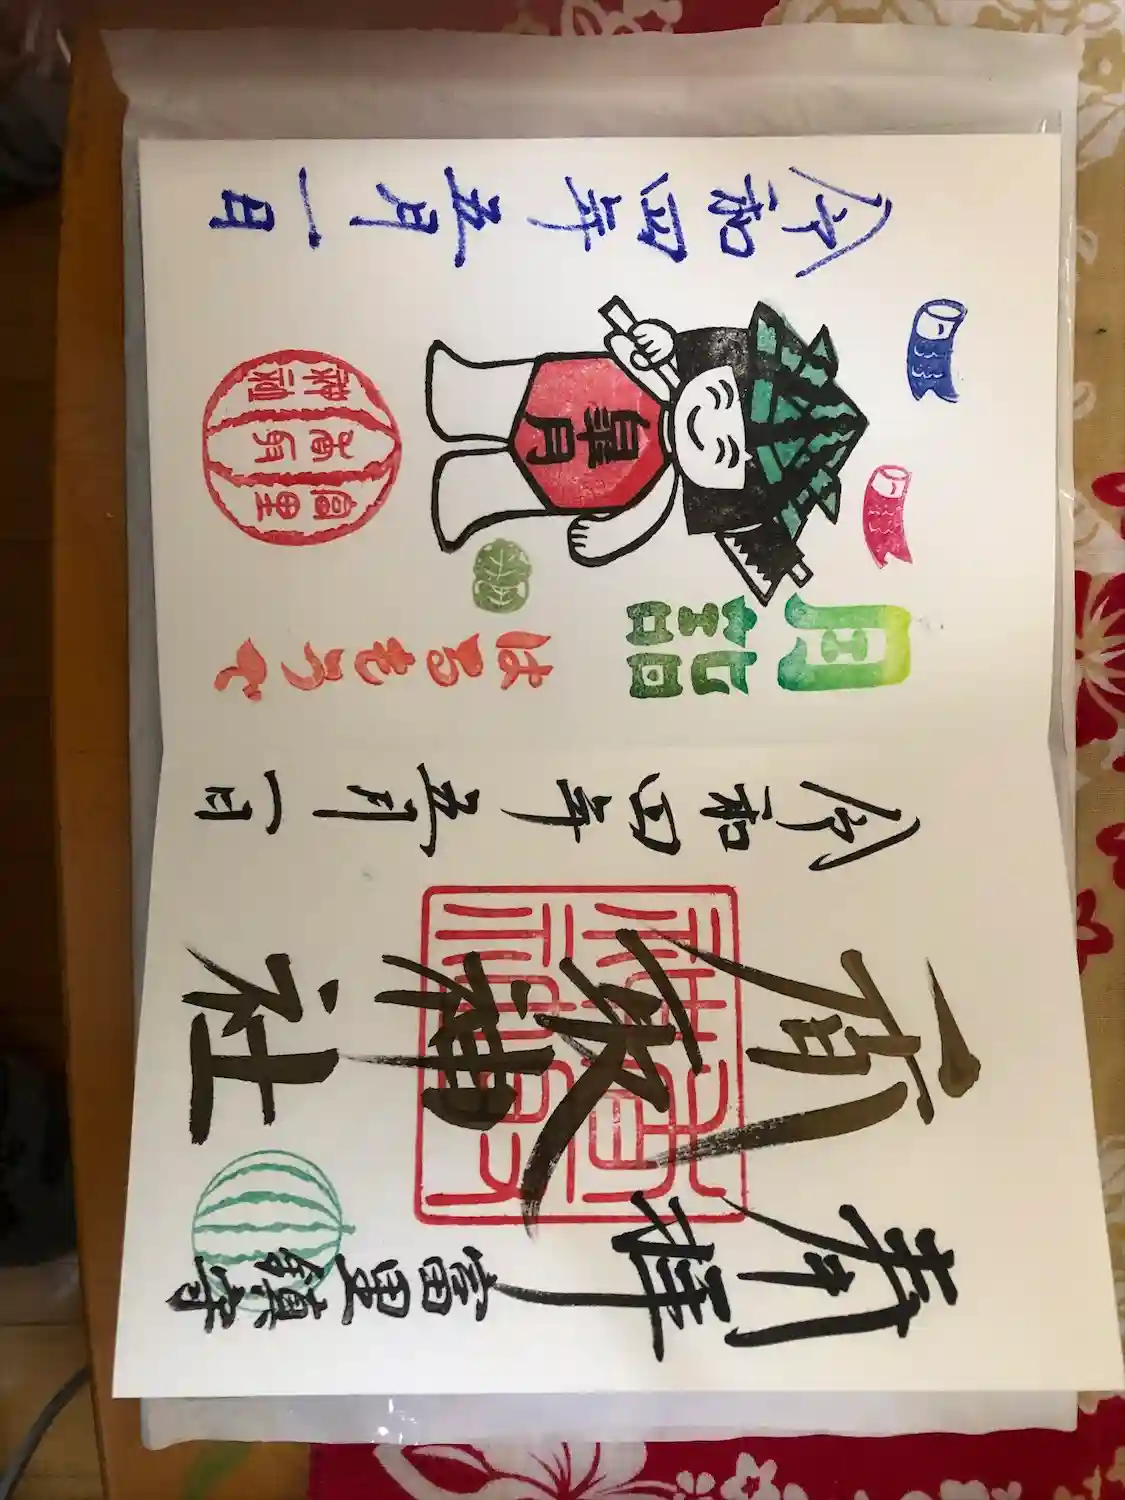 奉拝
富里鎮守
神社
令和四年五月一日
月詣
はるもうで
皐月
富里
令和四年五月一日